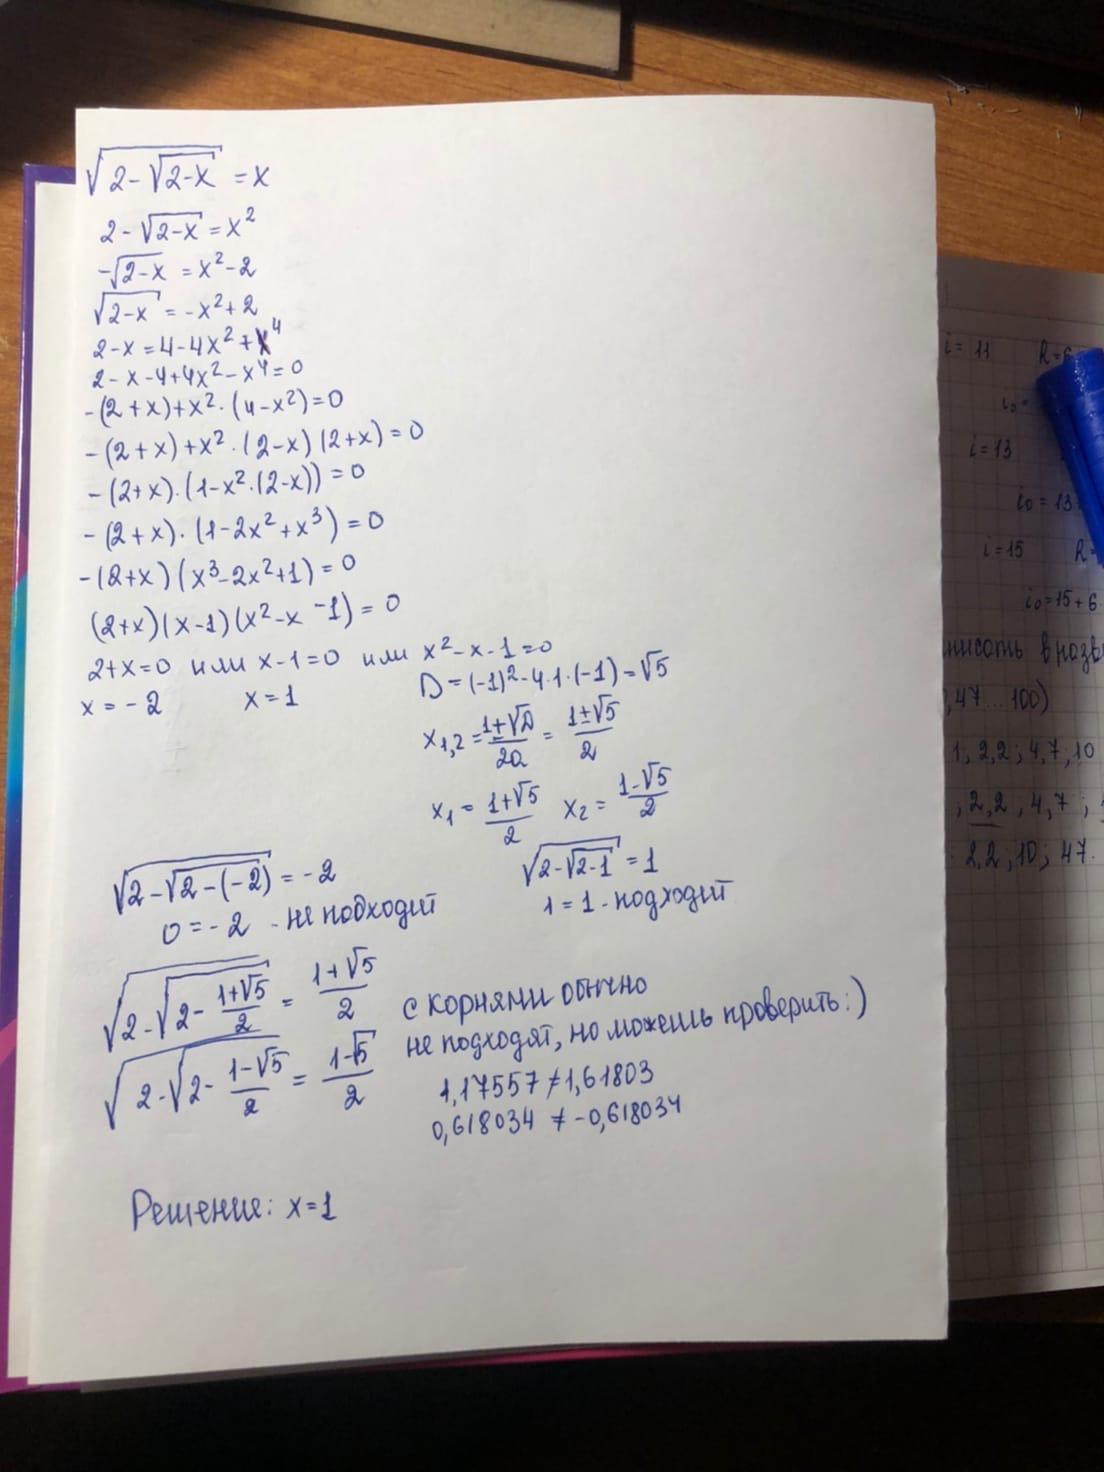 √(2-√(2-x)) = x
2-√(2-x) = x²
-√(2-x) = x²-2
√(2-x) = -x²+2
2-x=4-4x²+x⁴
2-x-4+4x²-x⁴=0
-(2+x)+x²·(4-x²)=0
-(2+x)+x²·(2-x)(2+x)=0
-(2+x)·(1-x²·(2-x))=0
-(2+x)·(1-2x²+x³)=0
-(2+x)(x³-2x²+1)=0
(2+x)(x-1)(x²-x-1)=0
2+x=0 или x-1=0 или x²-x-1=0
x=-2 x=1 D=(-1)²-4·1·(-1)=√5
x₁,₂=(1±√D)/2a = (1±√5)/2
x₁=(1+√5)/2 x₂=(1-√5)/2
√(2-√(2-(-2))) = -2 √(2-√(2-1)) = 1
0=-2 - не подходит 1=1 - подходит
√(2-√(2-(1+√5)/2)) = (1+√5)/2 с корнями обычно
√(2-√(2-(1-√5)/2)) = (1-√5)/2 не подходят, но можешь проверить:)
1,17557≠1,61803
0,618034 ≠ -0,618034
Решение: x=1
i=11 R=6
i₀=
i=13
i₀=13
i=15 R=
i₀=15+6
,47...100)
1, 2,2; 4,7; 10
, 2,2, 4,7;
2,2; 10; 47.